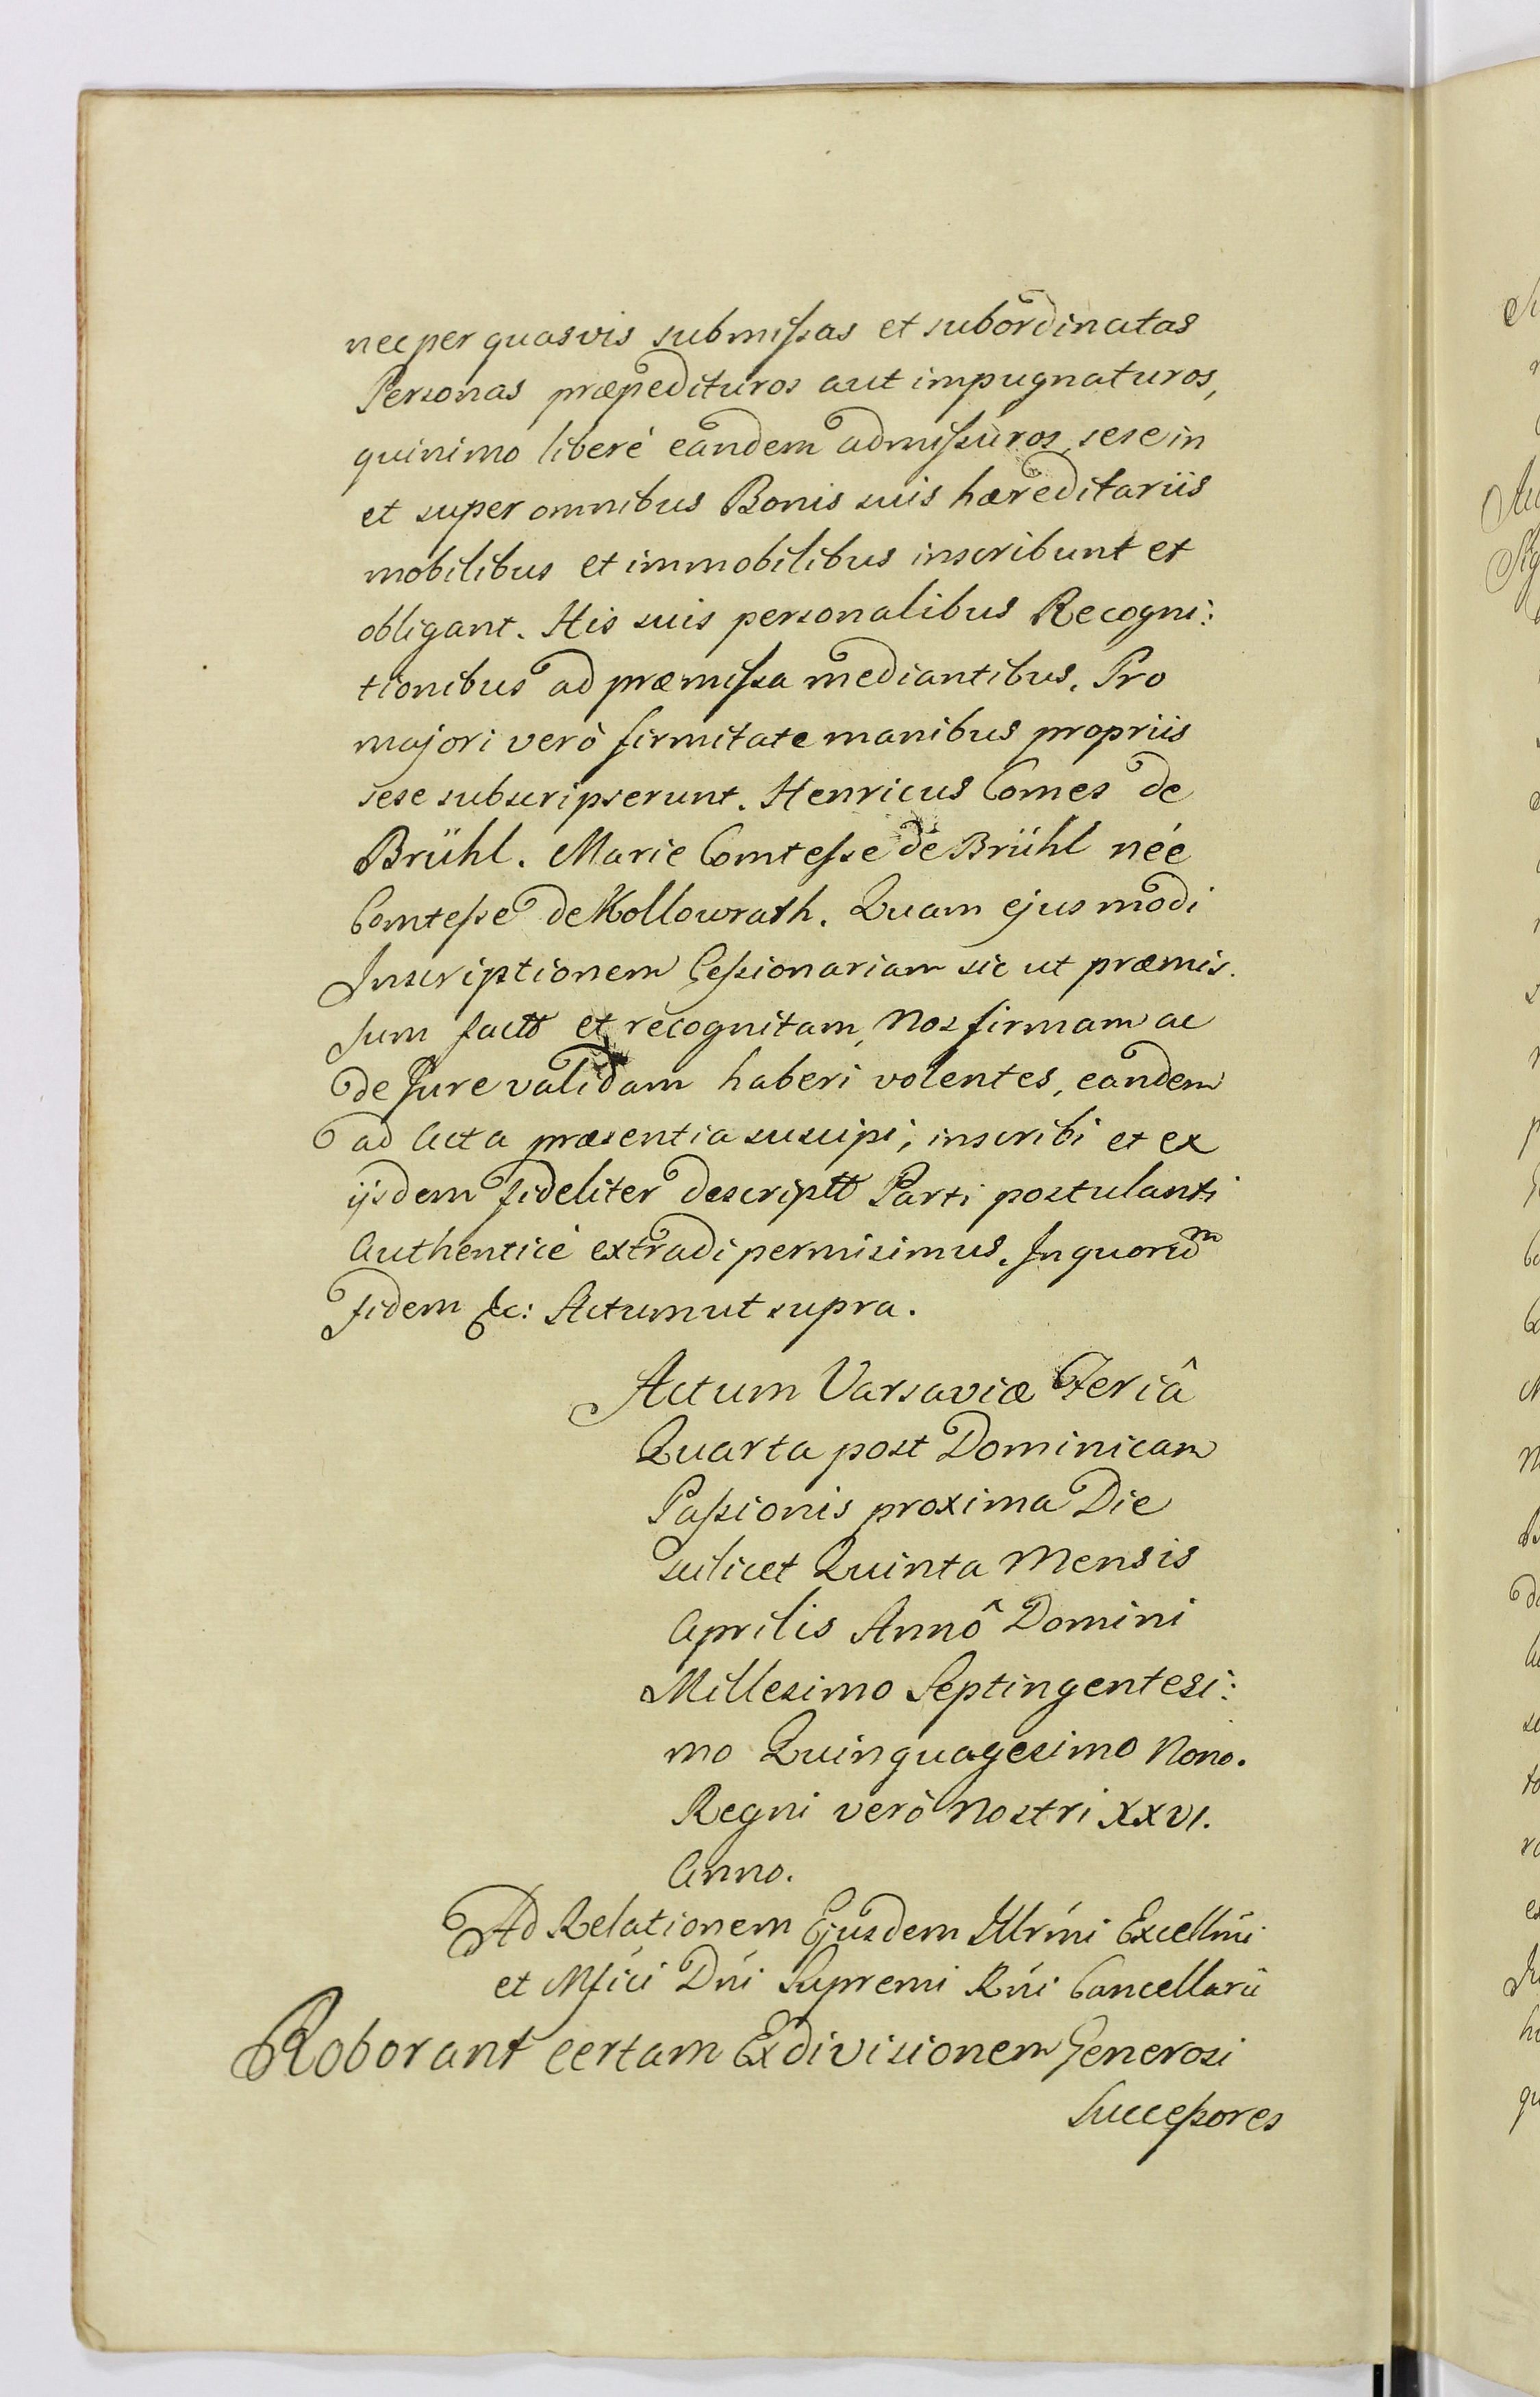 nec per quasvis submissas et subordinatas
Personas præpedituros aut impugnaturos,
quinimo liberè eandem admissuros, sese in
et super omnibus Bonis suis hæreditariis
mobilibus et immobilibus inscribunt et
obligant. His suis personalibus Recogni:
tionibus ad præmissa mediantibus. Pro
majori verò firmitate manibus propriis
sese subscripserunt. Henricus Comes de
Brühl. Marie Comtesse de Brühl née
Comtesse de Kollowrath. Quam ejusmodi
Inscriptionem Cessionariam sic ut præmis.
sum factt et recognitam, Nos firmam ac
de Jure validam haberi volentes, eandem
ad Acta præsentia suscipi, inscribi et ex
ijsdem fideliter descriptt Parti postulanti
Authenticè extradi permisimus. In quorum
fidem &c: Actum ut supra.
Actum Varsaviæ Feriâ
Quarta post Dominicam
Passionis proxima Die
scilicet Quinta Mensis
Aprilis Annô Domini
Millesimo Septingentesi:
mo Quinquagesimo Nono.
Regni verò Nostri XXVI.
Anno.
Ad Relationem Ejusdem Illrmi Excellmi
et Mfici Dni Supremi Rni Cancellarii
Roborant certam Exdivisionem Generosi
Successores